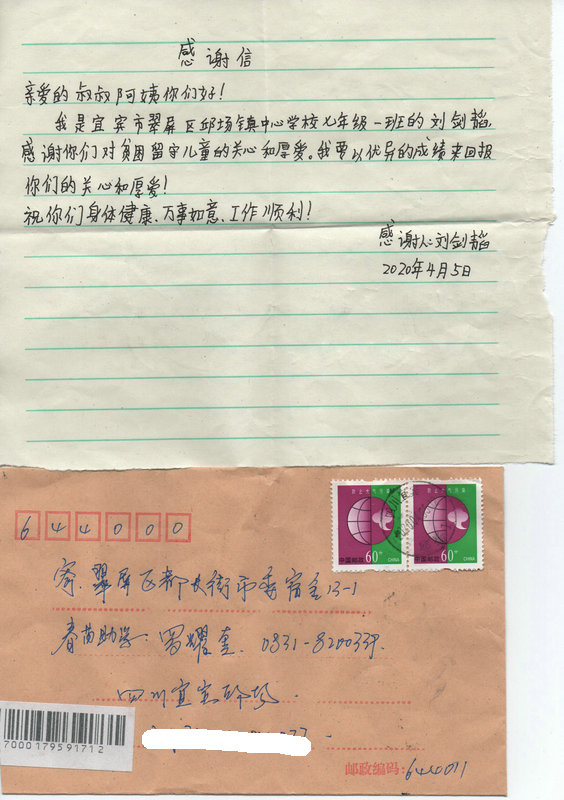 感谢信
亲爱的叔叔阿姨你们好！
我是宜宾市翠屏区邱场镇中心学校七年级一班的刘剑韬,
感谢你们对贫困留守儿童的关心和厚爱。我要以优异的成绩来回报
你们的关心和厚爱！
祝你们身体健康、万事如意、工作顺利！
感谢人:刘剑韬
2020年4月5日
644000
防止大气污染
防止大气污染
中国邮政 60分 CHINA
中国邮政 60分 CHINA
寄.翠屏区都长街市委宿舍13-1
春苗助学. 罗耀奎. 0831-8200339.
四川宜宾邱场.
7000179591712
邮政编码: 644011